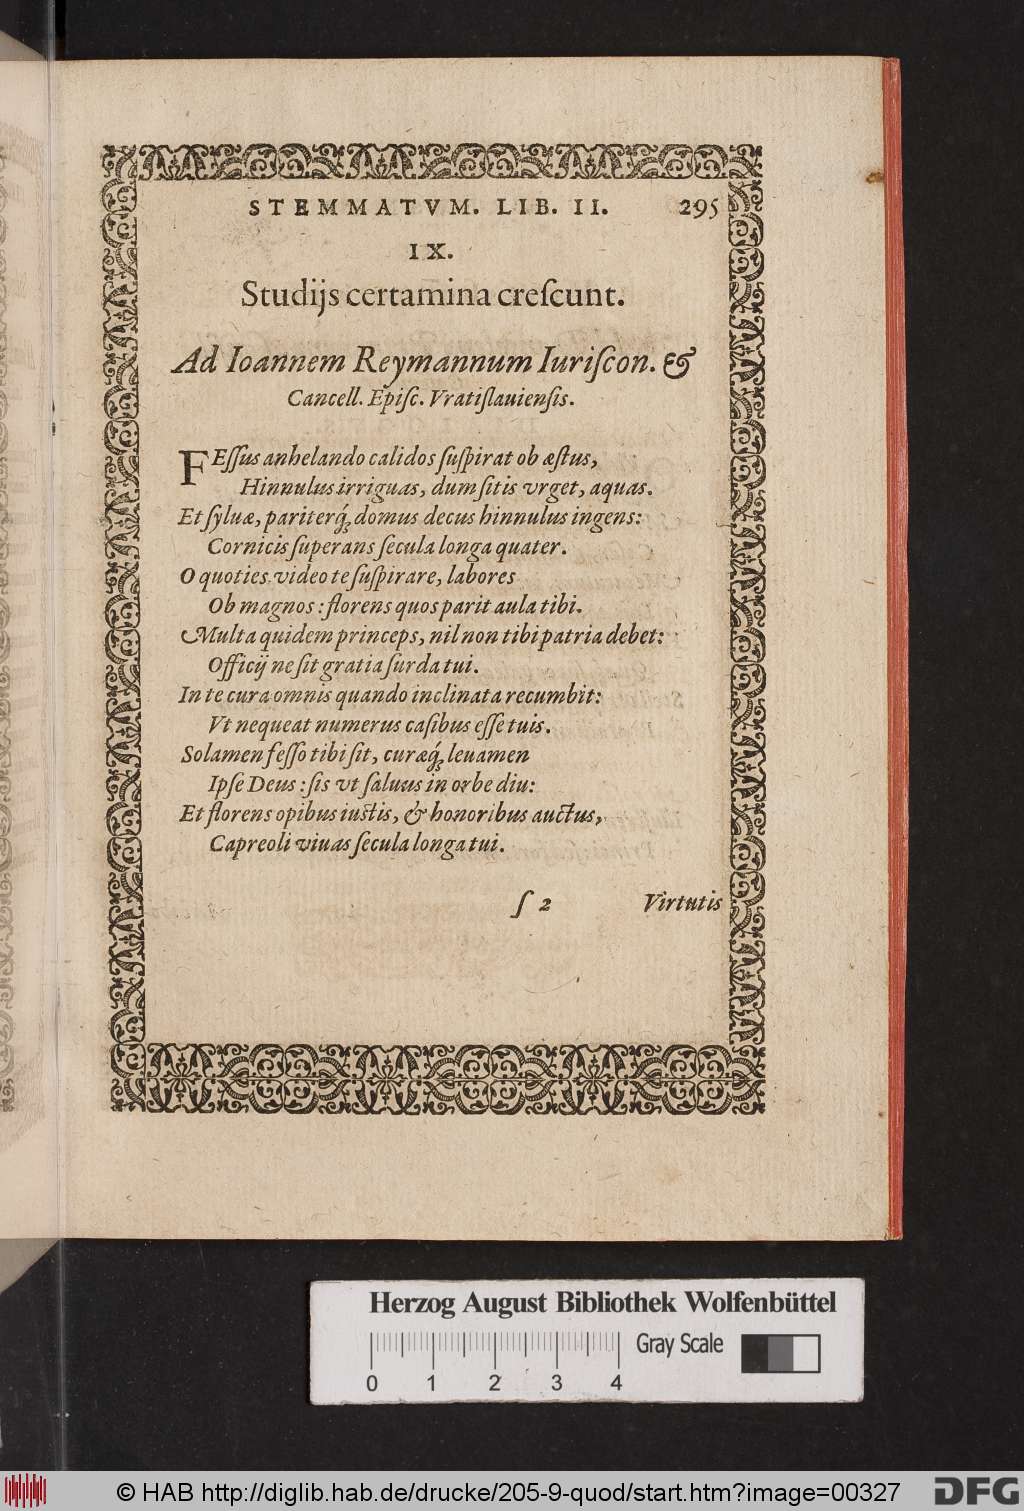 STEMMATVM. LIB. II. 295
IX.
Studijs certamina creſcunt.
Ad Ioannem Reymannum Iuriſcon. &
Cancell. Epiſc. Vratiſlauienſis.
FEſſus anhelando calidos ſuſpirat ob æſtus,
Hinnulus irriguas, dum ſitis vrget, aquas.
Et ſyluæ, pariterq́; domus decus hinnulus ingens:
Cornicis ſuperans ſecula longa quater.
O quoties video te ſuſpirare, labores
Ob magnos: florens quos parit aula tibi.
Multa quidem princeps, nil non tibi patria debet:
Officij ne ſit gratia ſurda tui.
In te cura omnis quando inclinata recumbit:
Vt nequeat numerus caſibus eſſe tuis.
Solamen feſſo tibi ſit, curæq́; leuamen
Ipſe Deus: ſis vt ſaluus in orbe diu:
Et florens opibus iustis, & honoribus auctus,
Capreoli viuas ſecula longa tui.
ſ 2 Virtutis
Herzog August Bibliothek Wolfenbüttel
Gray Scale
0 1 2 3 4
© HAB http://diglib.hab.de/drucke/205-9-quod/start.htm?image=00327
DFG